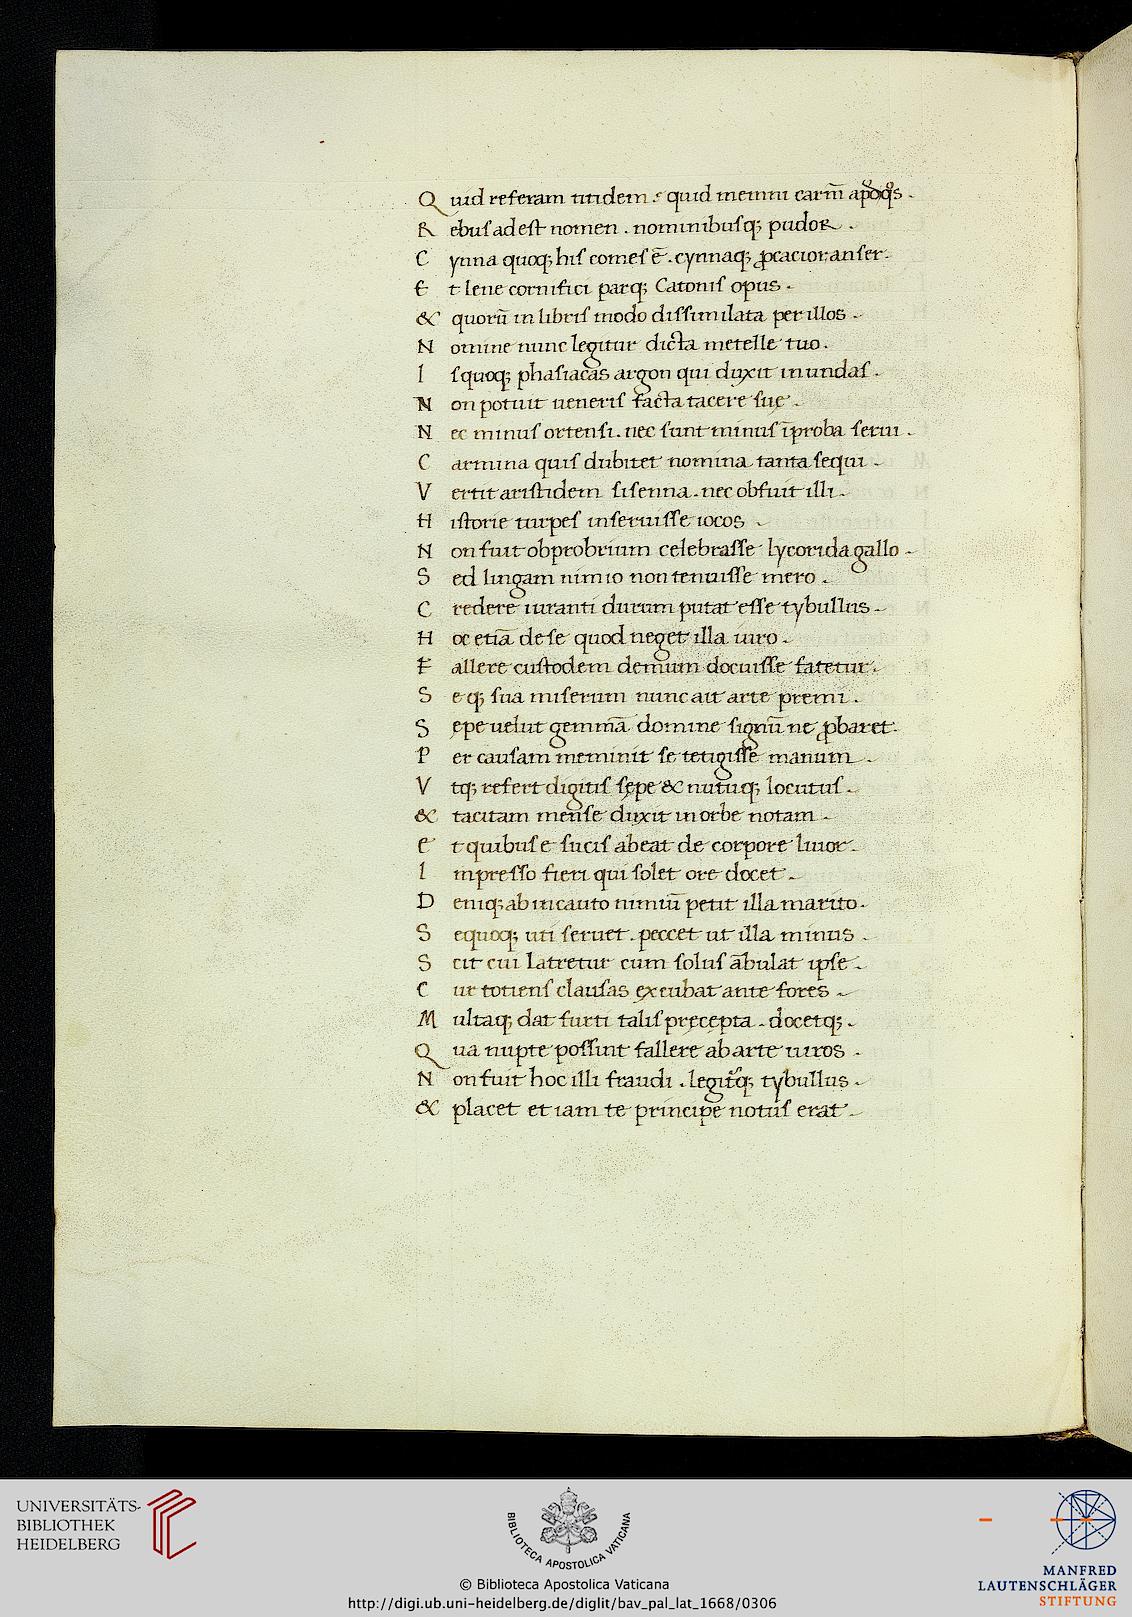 Q uid referam titidem . quid memmi carm̄ apđ q̊s .
R ebuſ adeſt nomen . nominibuſq; pudor .
C ynna quoq; hiſ comeſ ē . cynnaq; ꝓcacior anſer .
E t leue cornifici parq; Catoniſ opus .
& quorū in libriſ modo diſſimilata per illos .
N omine nunc legitur dicta metelle tuo .
I ſ quoq; phaſiacas argon qui duxit in undaſ .
N on potuit ueneriſ facta tacere ſuę .
N ec minuſ ortenſi . nec ſunt minuſ īproba ſerui .
C armina quiſ dubitet nomina tanta ſequi .
V ertit ariſtidem ſiſenna . nec obfuit illi .
H iſtorie turpeſ inſeruiſſe iocos .
N on fuit obprobrium celebraſſe lycorida gallo .
S ed lingam nimio non tenuiſſe mero .
C redere iuranti durum putat eſſe tybullus .
H oc etiā de ſe quod neget illa uiro .
F allere cuſtodem demum docuiſſe fatetur .
S eq; ſua miſerum nunc ait arte premi .
S ępe uelut gemmā domine ſignū ne ꝓbaret .
P er cauſam meminit ſe tetigiſſe manum .
V tq; refert digitiſ ſępe & nutuq; locutuſ .
& tacitam menſe duxit in orbe notam .
E t quibuſ e ſuciſ abeat de corpore liuor .
I mpreſſo fieri qui ſolet ore docet .
D eniq; ab incauto nimiū petit illa marito .
S e quoq; uti ſeruet . peccet ut illa minus .
S cit cui latretur cum ſoluſ ābulat ipſe .
C ur totienſ clauſas excubat ante fores .
M ultaq; dat furti taliſ pręcepta . docetq; .
Q ua nupte poſſint fallere ab arte uiros .
N on fuit hoc illi fraudi . legit᷑q; tybullus .
& placet et iam te principe notuſ erat .
UNIVERSITÄTS-
BIBLIOTHEK
HEIDELBERG
BIBLIOTECA APOSTOLICA VATICANA
MANFRED
LAUTENSCHLÄGER
STIFTUNG
© Biblioteca Apostolica Vaticana
http://digi.ub.uni-heidelberg.de/diglit/bav_pal_lat_1668/0306